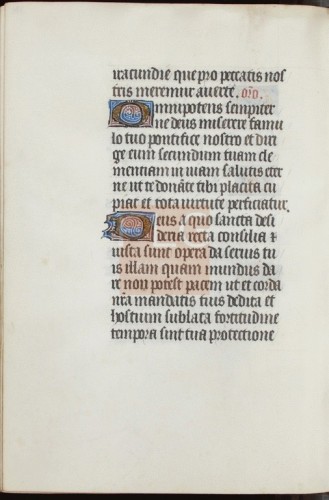 iracundie que pro peccatis nos
tris meremur averte. oro.
Omnipotens sempiter
ne deus miserere famu
lo tuo pontifice nostro et diri
ge eum secundum tuam cle
mentiam in viam salutis eter
ne ut te donante tibi placita cu
piat et tota virtute perficiatur.
Deus a quo sancta desi
deria recta consilia et
iusta sunt opera da servis tu
is illam quam mundus da
re non potest pacem ut et corda
nra mandatis tuis dedita et
hostium sublata fortitudine
tempora sint tua protectione